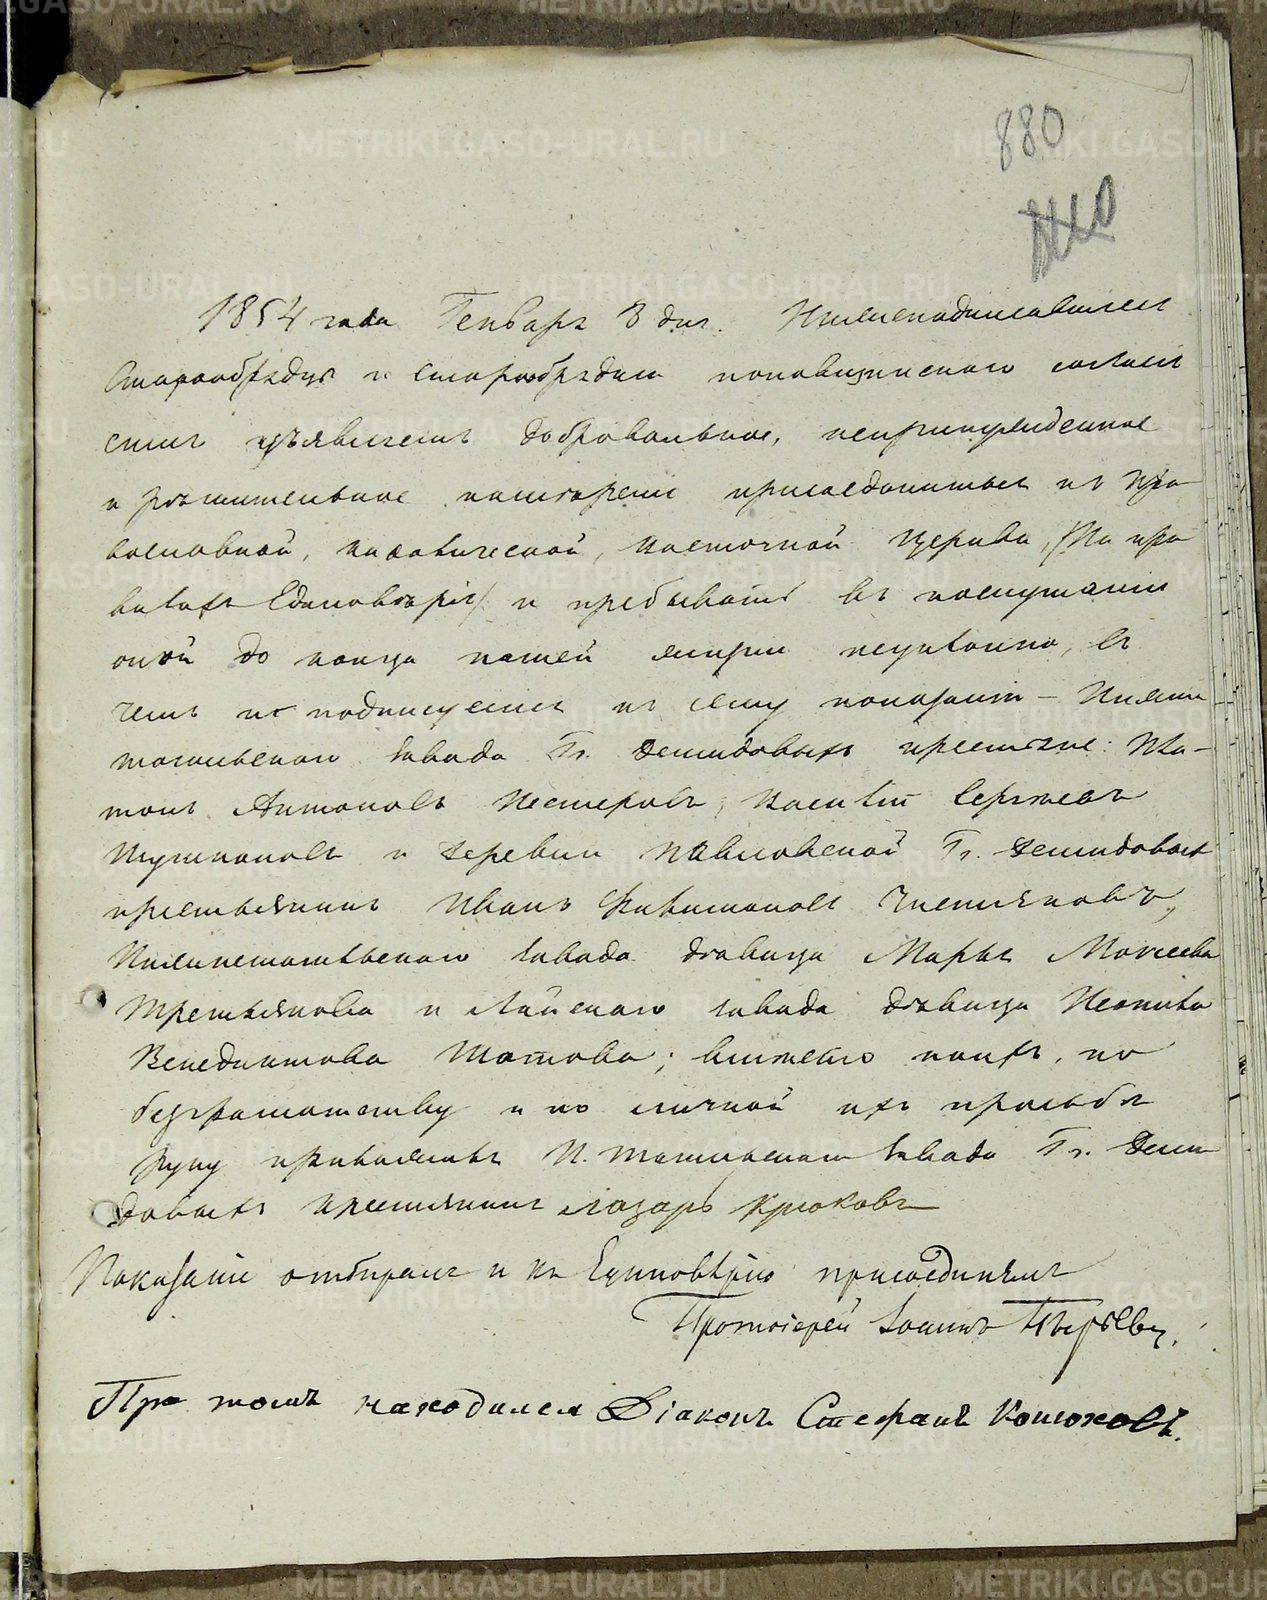 880
1854 года Генваря 8 дня. Нижеподписавшiеся
Старообрядцы и старообрядки поповщинскаго согласiя
симъ изъявляемъ добровольное, непринужденное
и рѣшительное намѣренiе присоединиться къ Пра-
вославной, каѳолической, восточной церкви, (на пра
вилахъ Единовѣрiя) и пребывать въ послушанiи
оной до конца нашей жизни неуклонно, въ
чемъ и подписуемся къ сему показанiю – Нижне
тагильскаго завода Гг. Демидовыхъ крестьяне: Пла-
тонъ Антоновъ Нестеровъ, Василiй Сергѣевъ
и деревни Павловской Гг. Демидовыхъ
крестьянинъ Иванъ Чистяковъ,
Нижнетагильскаго завода дѣвица Марья Моисеева
Третьякова и Лайскаго завода дѣвица Неонила
Венедиктова ; вмѣсто коихъ, по
безграмотству и по личной ихъ просьбѣ
руку приложилъ Н. Тагильскаго завода Гг. Деми
довыхъ крестьянинъ Лазарь Крюковъ
Показанiе отбиралъ и къ Единовѣрiю присоединялъ
Протоiерей Iоаннъ Пырьевъ.
При томъ находился Дiаконъ Стефанъ Конюховъ.
METRIKI.GASO-URAL.RU